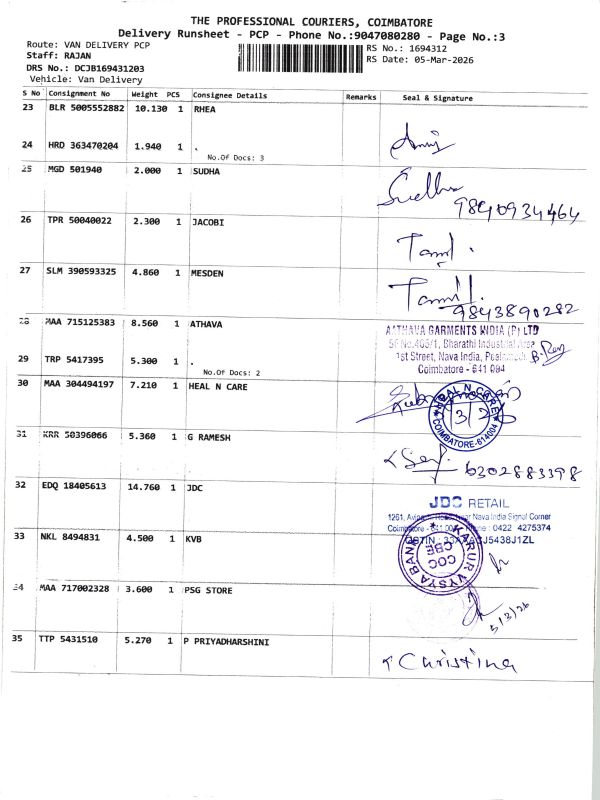 THE PROFESSIONAL COURIERS, COIMBATORE
Delivery Runsheet - PCP - Phone No.:9047080280 - Page No.:3
Route: VAN DELIVERY PCP
Staff: RAJAN
DRS No.: DCJB169431203
Vehicle: Van Delivery
RS No.: 1694312
RS Date: 05-Mar-2026
S No Consignment No Weight PCS Consignee Details Remarks Seal & Signature
23 BLR 5005552882 10.130 1 RHEA
24 HRD 363470204 1.940 1 .
No.Of Docs: 3
25 MGD 501940 2.000 1 SUDHA
Sudha
9840934464
26 TPR 50040022 2.300 1 JACOBI
Tamil.
27 SLM 390593325 4.860 1 MESDEN
Tamil.
9843890282
28 MAA 715125383 8.560 1 ATHAVA
AATHAVA GARMENTS INDIA (P) LTD
SF No.405/1, Bharathi Industrial Area
1st Street, Nava India, Peelamedu
Coimbatore - 641 004
29 TRP 5417395 5.300 1 .
No.Of Docs: 2
30 MAA 304494197 7.210 1 HEAL N CARE
HEAL N CARE
COIMBATORE-614004
31 KRR 50396066 5.360 1 G RAMESH
6302883398
32 EDQ 18405613 14.760 1 JDC
JDC RETAIL
1261, Avinashi Road, Near Nava India Signal Corner
Coimbatore - 641 004 Phone : 0422 4275374
5438J1ZL
33 NKL 8494831 4.500 1 KVB
KARUR VYSYA BANK
COC
CBE
34 MAA 717002328 3.600 1 PSG STORE
5/3/26
35 TTP 5431510 5.270 1 P PRIYADHARSHINI
Christina